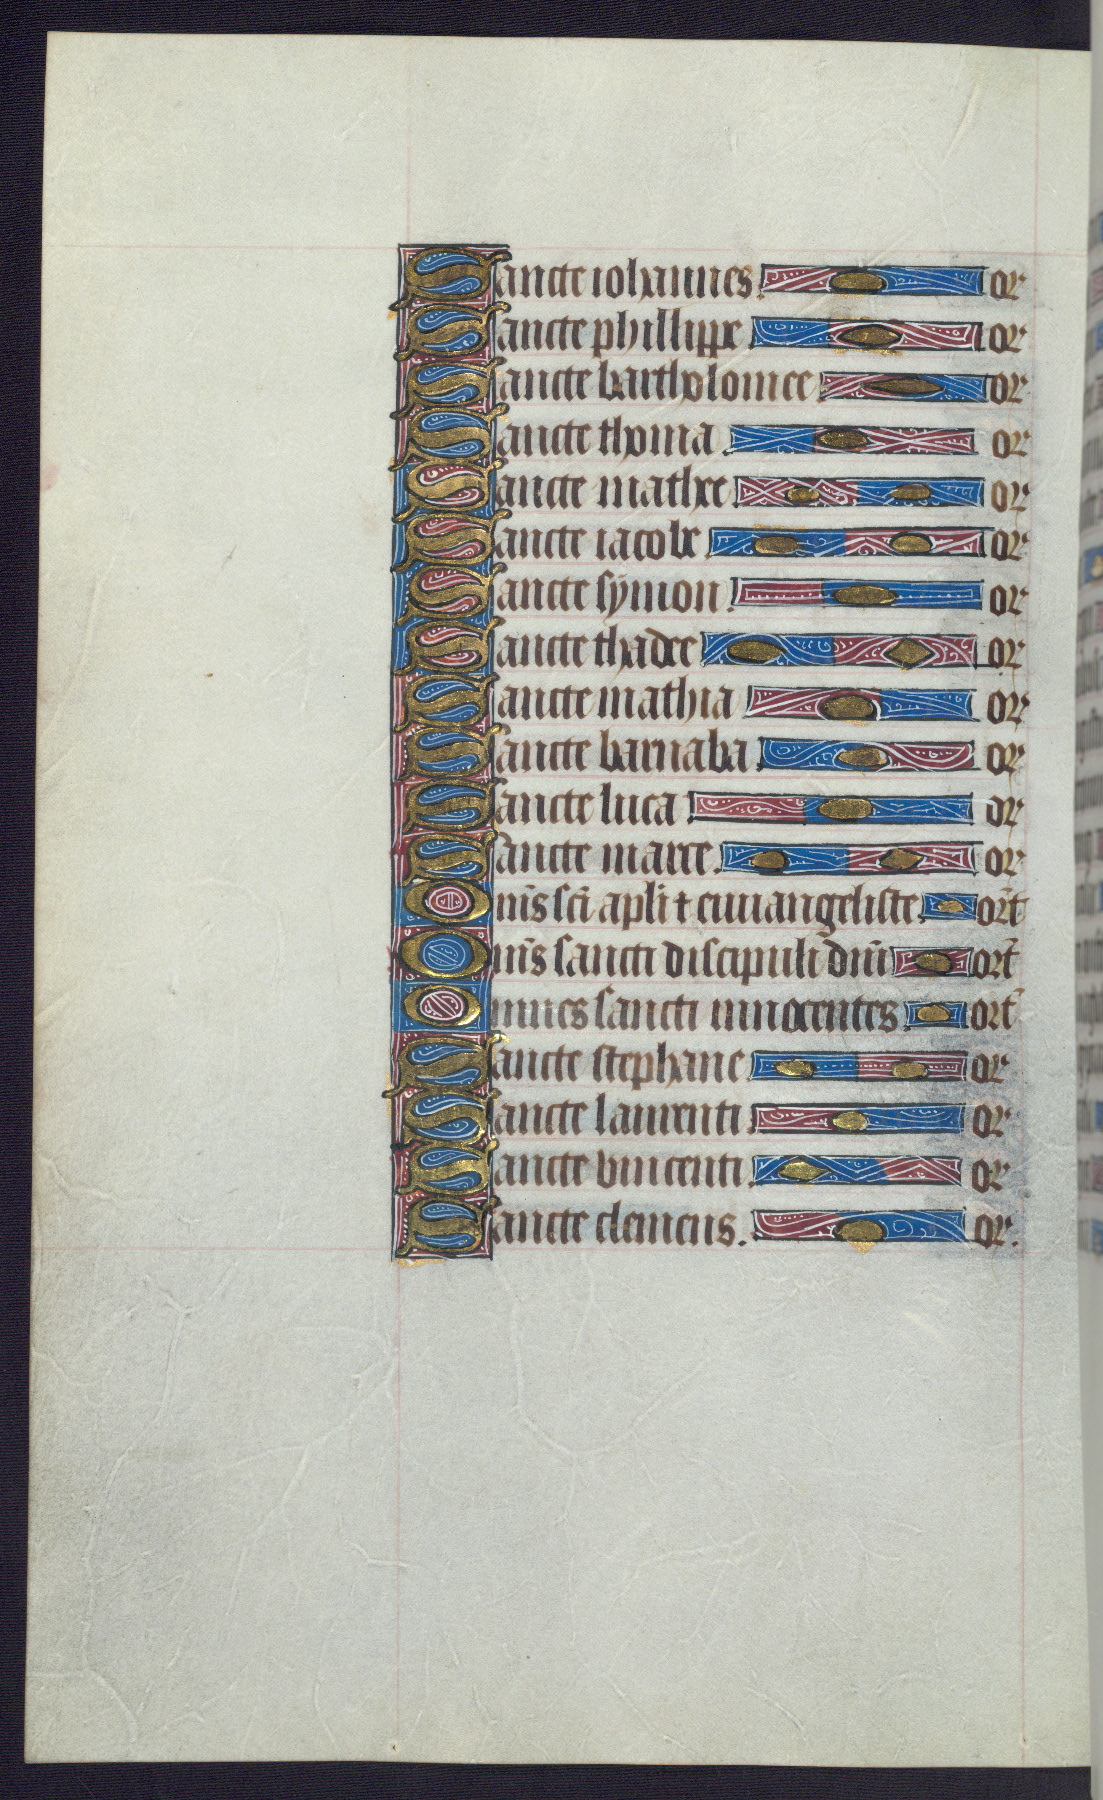 Sancte iohannes. or
Sancte phillippe or
Sancte bartholomee or
Sancte thoma or
Sancte mathee or
Sancte iacobe or
Sancte symon. or
Sancte thadee or
Sancte mathia or
Sancte barnaba or
Sancte luca or
Sancte marce. or
Om̄s sc̄i apl̄i ⁊ euuangeliste or̄t
Om̄s sancti discipuli dn̄i or̄t
Omnes sancti innocentes or̄t
Sancte stephane or
Sancte laurenti or
Sancte vincenti or
Sancte clemens. or.